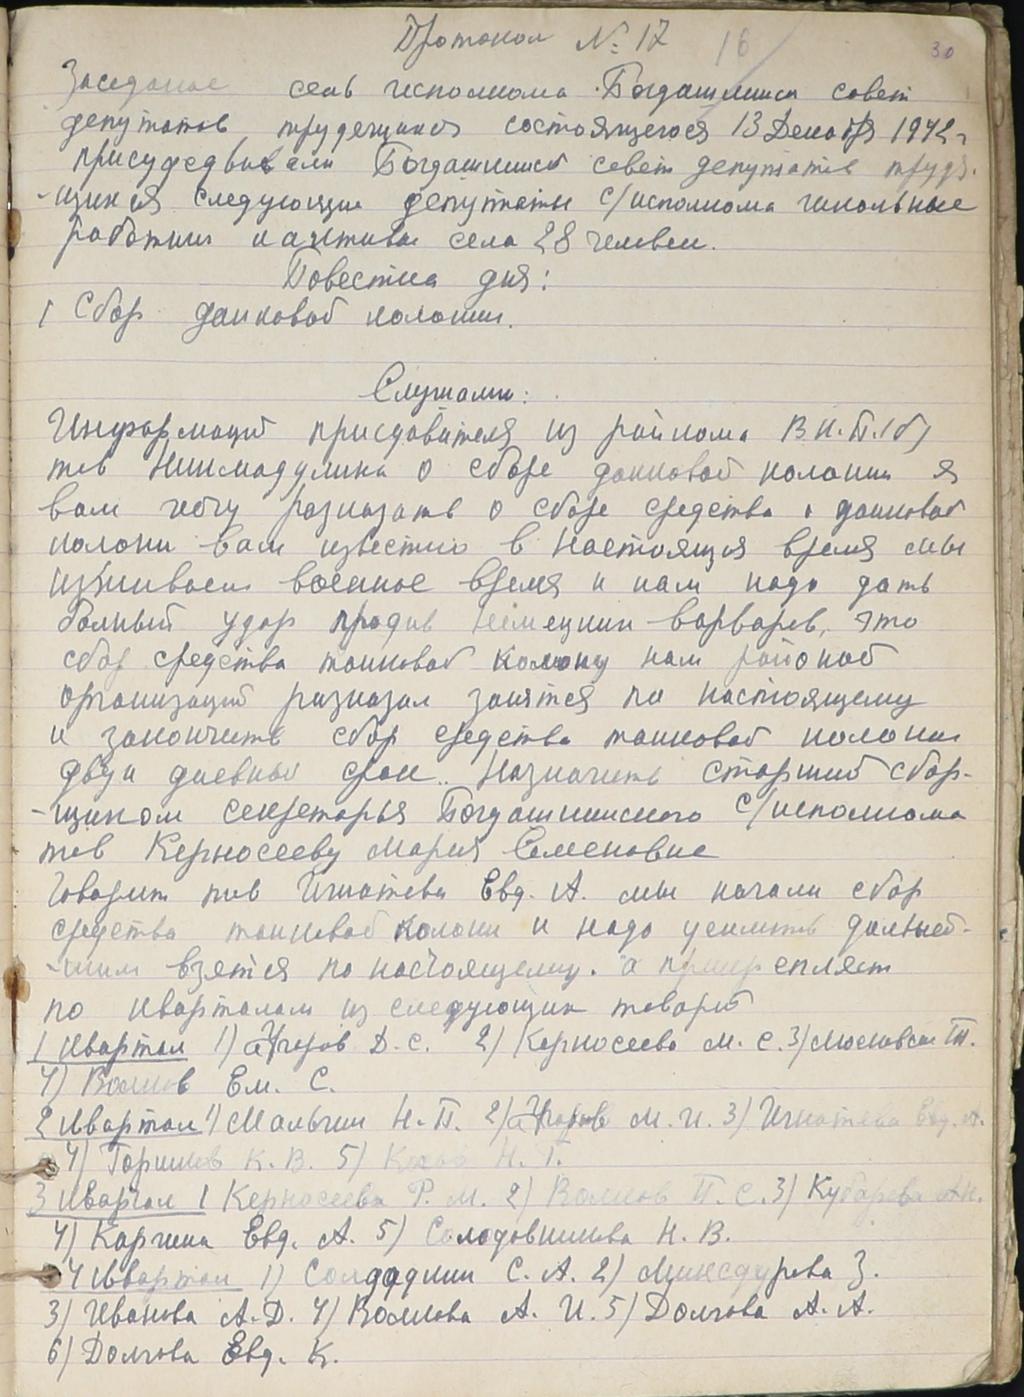 Протокол № 17 16 30
Заседание сель исполкома Богдашкинск совет
депутатов трудещихся состоящегося 13 Декабря 1942 г
присудствовали Богдашкинск совет депутатов трудя-
-щихся следующие депутаты с/исполкома школьные
работники и активы села 28 человек.
Повестка дня:
1 Сбор танковой колонны.
Слушали:
Информаций присдавителя из райкома ВК.П.(б)
тов Нишмадулина о сборе танковой колонны я
вам хочу разказать о сборе средства о танковой
колони вам известно в настоящая время мы
изживаем военное время и нам надо дать
болный удар продив немецких варваров, это
сбор средства танковой колону нам районой
организаций разказал занятся по настоящему
и закончить сбор средства танковой колонны
двух дневный срок.. Назначить старший сбор-
-щиком секретарья Богдашкинского с/исполкома
тов Керносееву Мария Семеновне
Говорит тов Игнатева Евд. А. мы начали сбор
средства танковой колони и надо усилить дальней-
-шим взятся по настоящему. а прикрепляет
по кварталам из следующих товарищ
1 квартал 1) Агаров Д. С. 2) Керносеева М. С. 3) Московская Т.
4) Волков Ем. С.
2 квартал 1) Малыгин Н. П. 2) М. И. 3) Игнатева Евд. А.
4) Горшков К. В. 5) Н. Г.
3 квартал 1 Керносеева Р. М. 2) Волков П. С. 3) Кубарева А.Н.
4) Каргина Евд. А. 5) Солодовникова Н. В.
4 квартал 1) С. А. 2) З.
3) Иванова А. Д. 4) Волкова А. И. 5) Долгова А. А.
6) Долгова Евд. К.